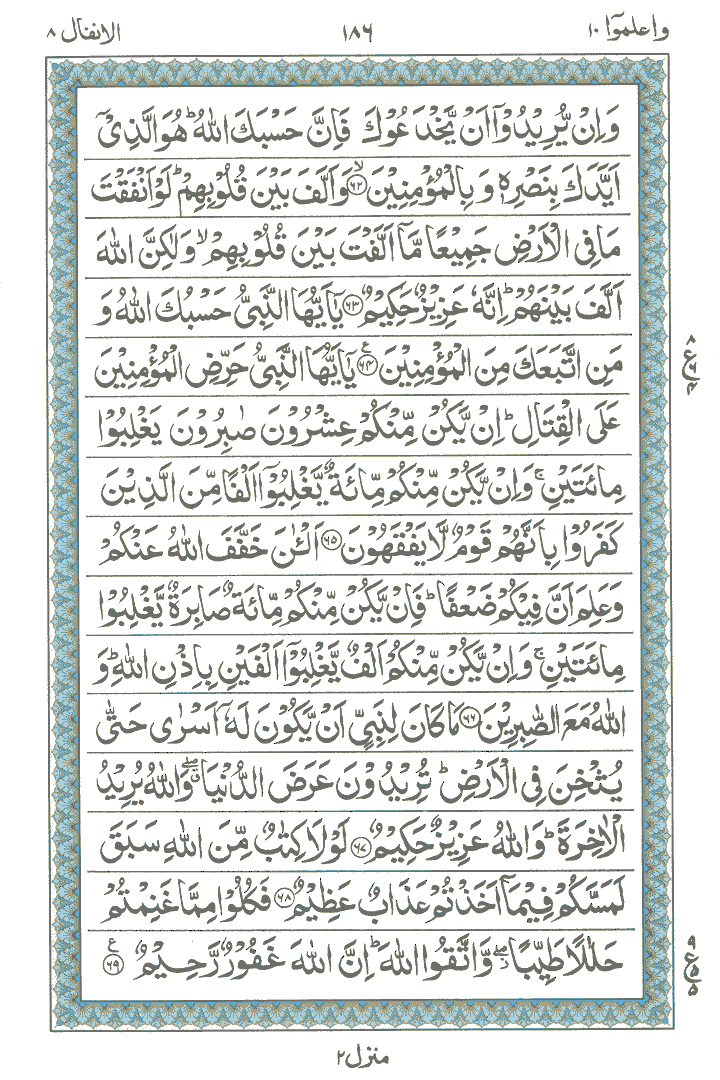 واعلموآ ١٠ ١٨٦ الانفال ٨
وَاِنْ يُّرِيْدُوْۤا اَنْ يَّخْدَعُوْكَ فَاِنَّ حَسْبَكَ اللّٰهُ ؕ هُوَ الَّذِىْۤ
اَيَّدَكَ بِنَصْرِهٖ وَ بِالْمُؤْمِنِيْنَ ۙ‏﴿۶۲﴾ وَاَلَّفَ بَيْنَ قُلُوْبِهِمْ ؕ لَوْ اَنْفَقْتَ
مَا فِى الْاَرْضِ جَمِيْعًا مَّاۤ اَلَّفْتَ بَيْنَ قُلُوْبِهِمْ ۙ وَلٰكِنَّ اللّٰهَ
اَلَّفَ بَيْنَهُمْ ؕ اِنَّهٗ عَزِيْزٌ حَكِيْمٌ ﴿۶۳﴾ يٰۤاَيُّهَا النَّبِىُّ حَسْبُكَ اللّٰهُ وَ
مَنِ اتَّبَعَكَ مِنَ الْمُؤْمِنِيْنَ ﴿۶۴﴾ ع يٰۤاَيُّهَا النَّبِىُّ حَرِّضِ الْمُؤْمِنِيْنَ
عَلَى الْقِتَالِ ؕ اِنْ يَّكُنْ مِّنْكُمْ عِشْرُوْنَ صٰبِرُوْنَ يَغْلِبُوْا
مِائَتَيْنِ ۚ وَاِنْ يَّكُنْ مِّنْكُمْ مِّائَةٌ يَّغْلِبُوْۤا اَلْفًا مِّنَ الَّذِيْنَ
كَفَرُوْا بِاَنَّهُمْ قَوْمٌ لَّا يَفْقَهُوْنَ ﴿۶۵﴾ اَلْـٰٔنَ خَفَّفَ اللّٰهُ عَنْكُمْ
وَعَلِمَ اَنَّ فِيْكُمْ ضَعْفًا ؕ فَاِنْ يَّكُنْ مِّنْكُمْ مِّائَةٌ صَابِرَةٌ يَّغْلِبُوْا
مِائَتَيْنِ ۚ وَاِنْ يَّكُنْ مِّنْكُمْ اَلْفٌ يَّغْلِبُوْۤا اَلْفَيْنِ بِاِذْنِ اللّٰهِ ؕ وَ
اللّٰهُ مَعَ الصّٰبِرِيْنَ ﴿۶۶﴾ مَا كَانَ لِنَبِىٍّ اَنْ يَّكُوْنَ لَهٗۤ اَسْرٰى حَتّٰى
يُثْخِنَ فِى الْاَرْضِ ؕ تُرِيْدُوْنَ عَرَضَ الدُّنْيَا ۖۗ وَاللّٰهُ يُرِيْدُ
الْاٰخِرَةَ ؕ وَاللّٰهُ عَزِيْزٌ حَكِيْمٌ ﴿۶۷﴾ لَوْلَا كِتٰبٌ مِّنَ اللّٰهِ سَبَقَ
لَمَسَّكُمْ فِيْمَاۤ اَخَذْتُمْ عَذَابٌ عَظِيْمٌ ﴿۶۸﴾ فَكُلُوْا مِمَّا غَنِمْتُمْ
حَلٰلًا طَيِّبًا ۖ وَّاتَّقُوا اللّٰهَ ؕ اِنَّ اللّٰهَ غَفُوْرٌ رَّحِيْمٌ ﴿۶۹﴾ ع
منزل ٢